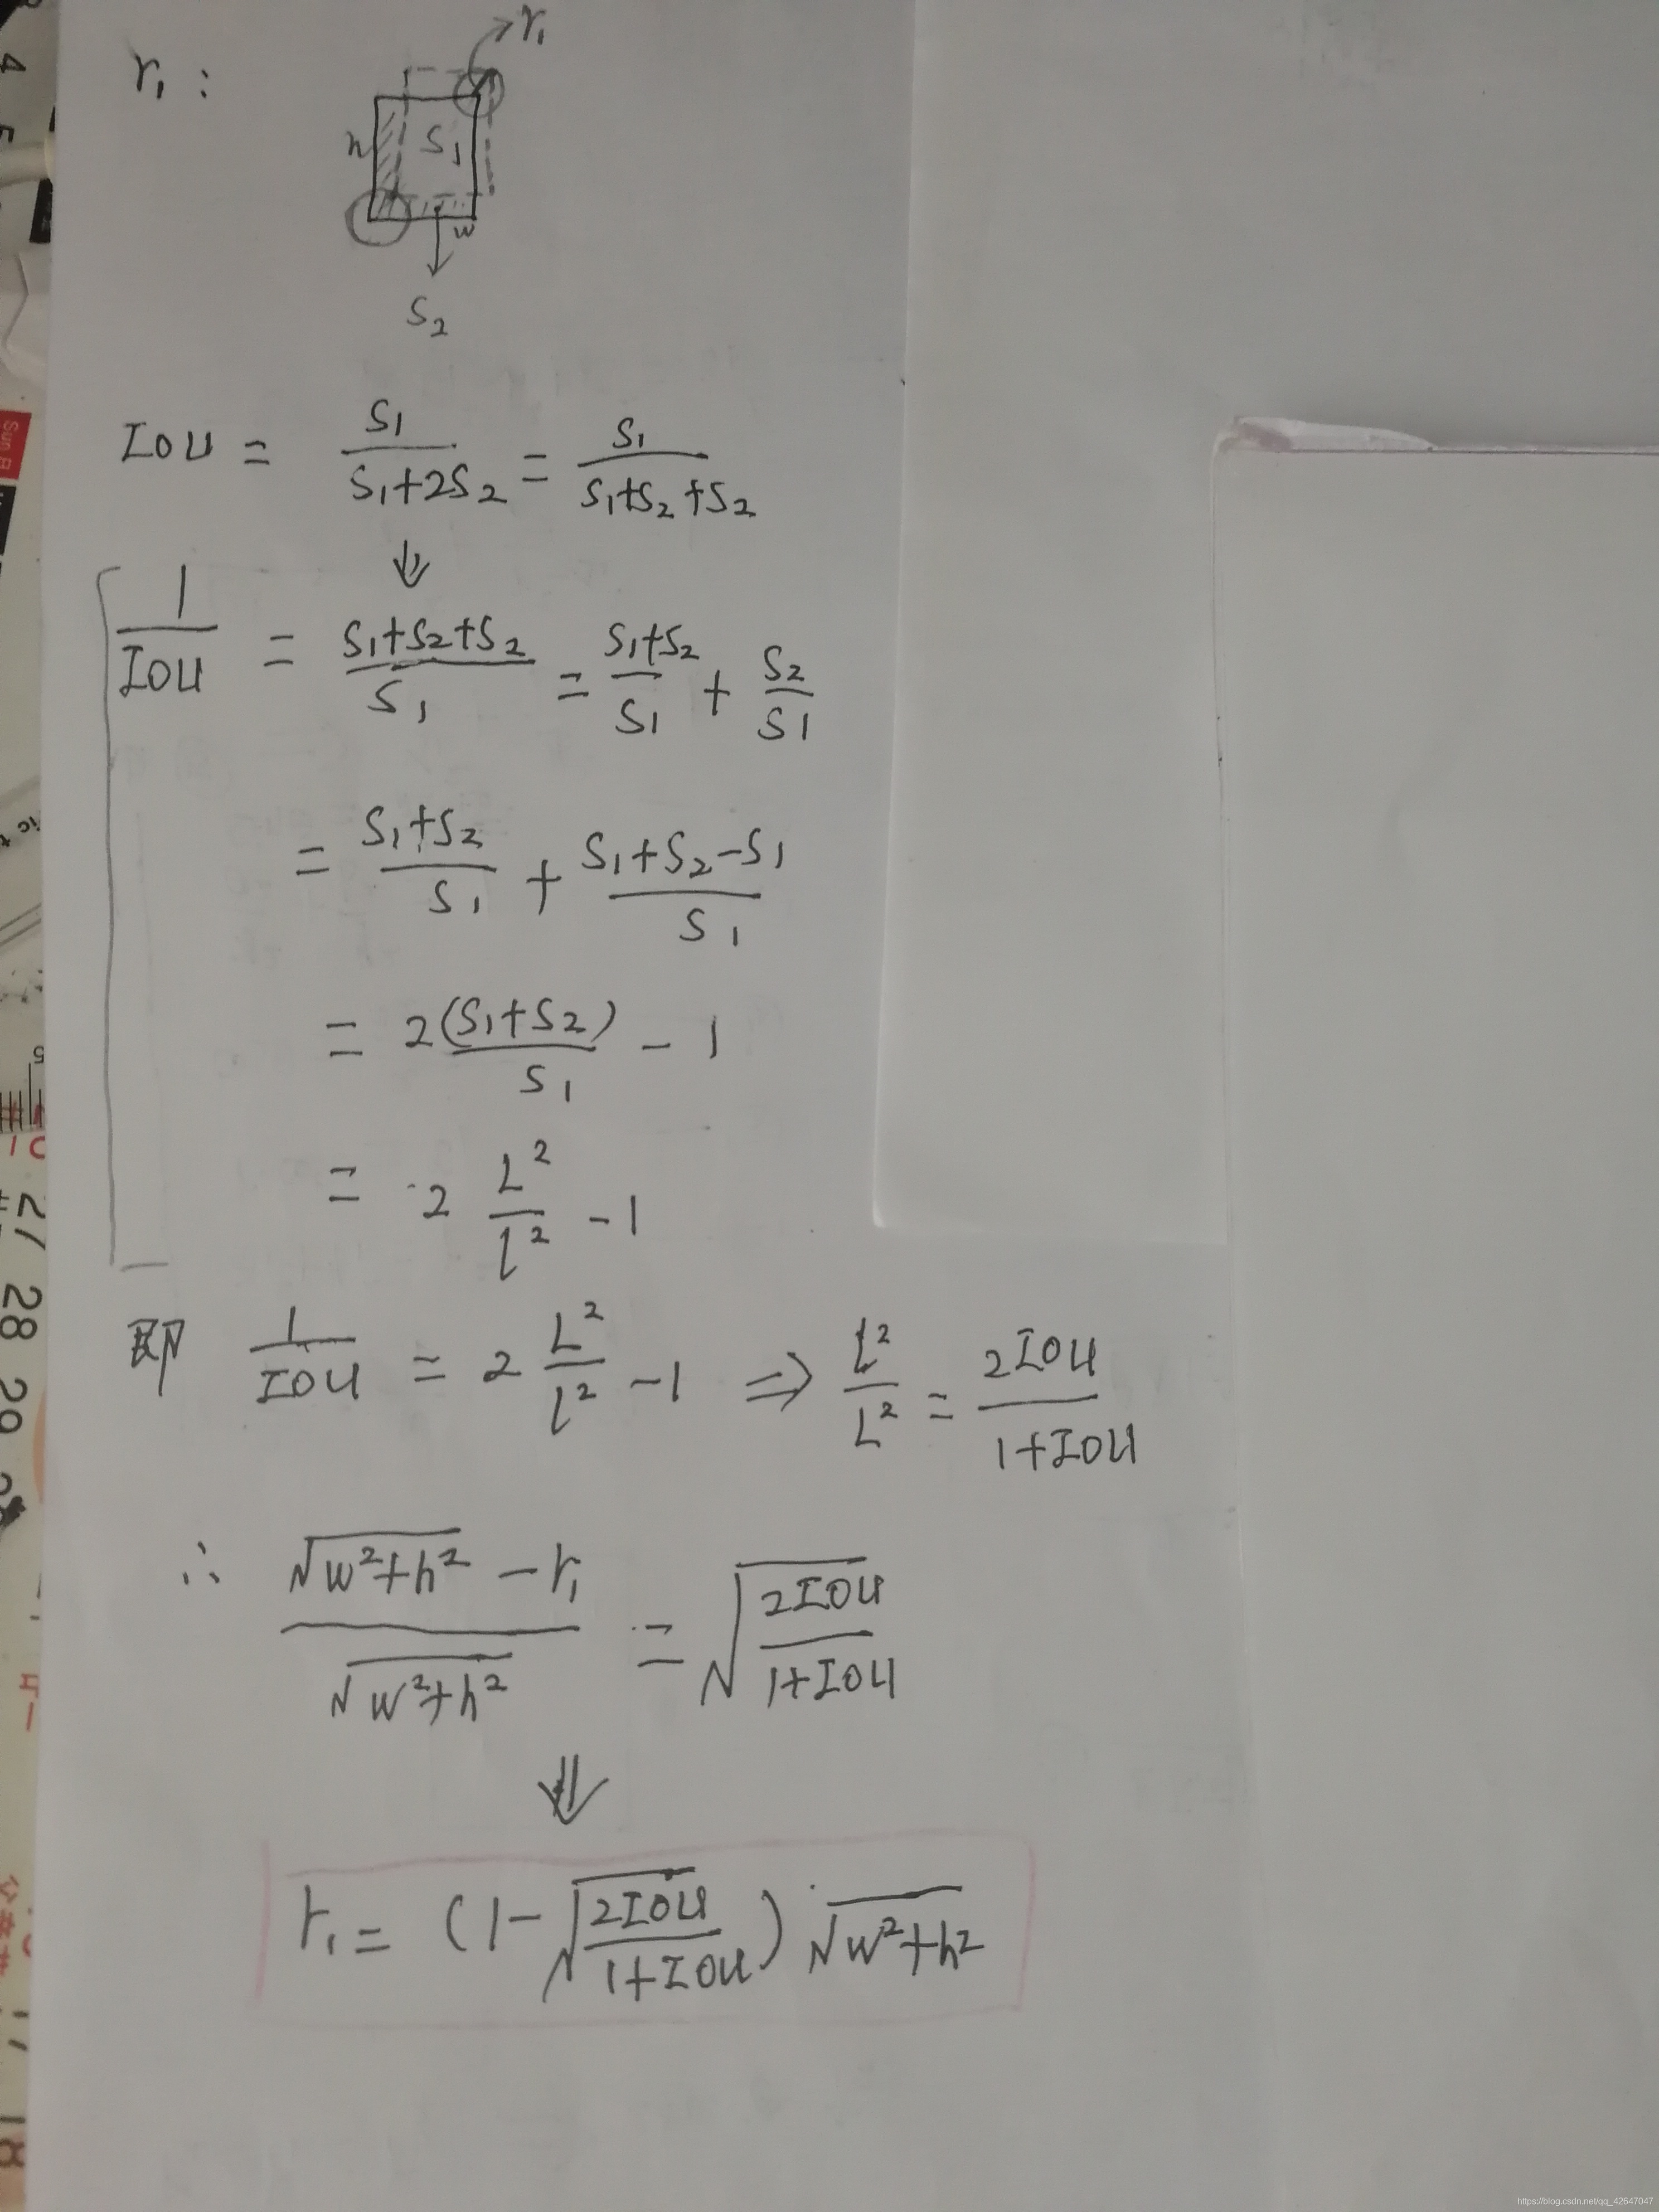 r₁ :
r₁
h S₁
w
S₂
IOU = S₁/(S₁+2S₂) = S₁/(S₁+S₂+S₂)
⇓
1/IOU = (S₁+S₂+S₂)/S₁ = (S₁+S₂)/S₁ + S₂/S₁
= (S₁+S₂)/S₁ + (S₁+S₂-S₁)/S₁
= 2(S₁+S₂)/S₁ - 1
= 2 L²/l² - 1
即 1/IOU = 2 L²/l² - 1 ⇒ l²/L² = 2IOU/(1+IOU)
∴ (√(w²+h²) - r₁)/√(w²+h²) = √(2IOU/(1+IOU))
⇓
r₁ = (1-√(2IOU/(1+IOU))) √(w²+h²)
27
28
29
18
https://blog.csdn.net/qq_42647047